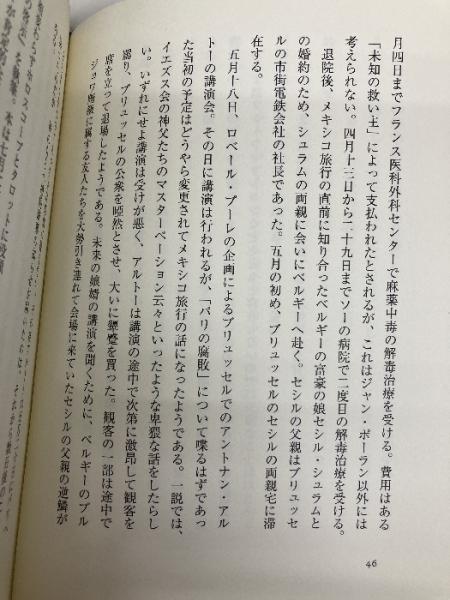 月四日までフランス医科外科センターで麻薬中毒の解毒治療を受ける。費用はある
「未知の救い主」によって支払われたとされるが、これはジャン・ポーラン以外には
考えられない。四月十三日から二十九日までソーの病院で二度目の解毒治療を受ける。
退院後、メキシコ旅行の直前に知り合ったベルギーの富豪の娘セシル・シュラムと
の婚約のため、シュラムの両親に会いにベルギーへ赴く。セシルの父親はブリュッセ
ルの市街電鉄会社の社長であった。五月の初め、ブリュッセルのセシルの両親宅に滞
在する。
五月十八日、ロベール・プーレの企画によるブリュッセルでのアントナン・アル
トーの講演会。その日に講演は行われるが、「パリの腐敗」について喋るはずであっ
た当初の予定はどうやら変更されてメキシコ旅行の話になったようである。一説では、
イエズス会の神父たちのマスターベーション云々といったような卑猥な話をしたらし
い。いずれにせよ講演は受けが悪く、アルトーは講演の途中で次第に激昂して観客を
罵り、ブリュッセルの公衆を唖然とさせ、大いに顰蹙を買った。観客の一部は途中で
席を立って退場したようである。未来の娘婿の講演を聞くために、ベルギーのブル
ジョワ階級に属する友人たちを大勢引き連れて会場に来ていたセシルの父親の逆鱗が
46